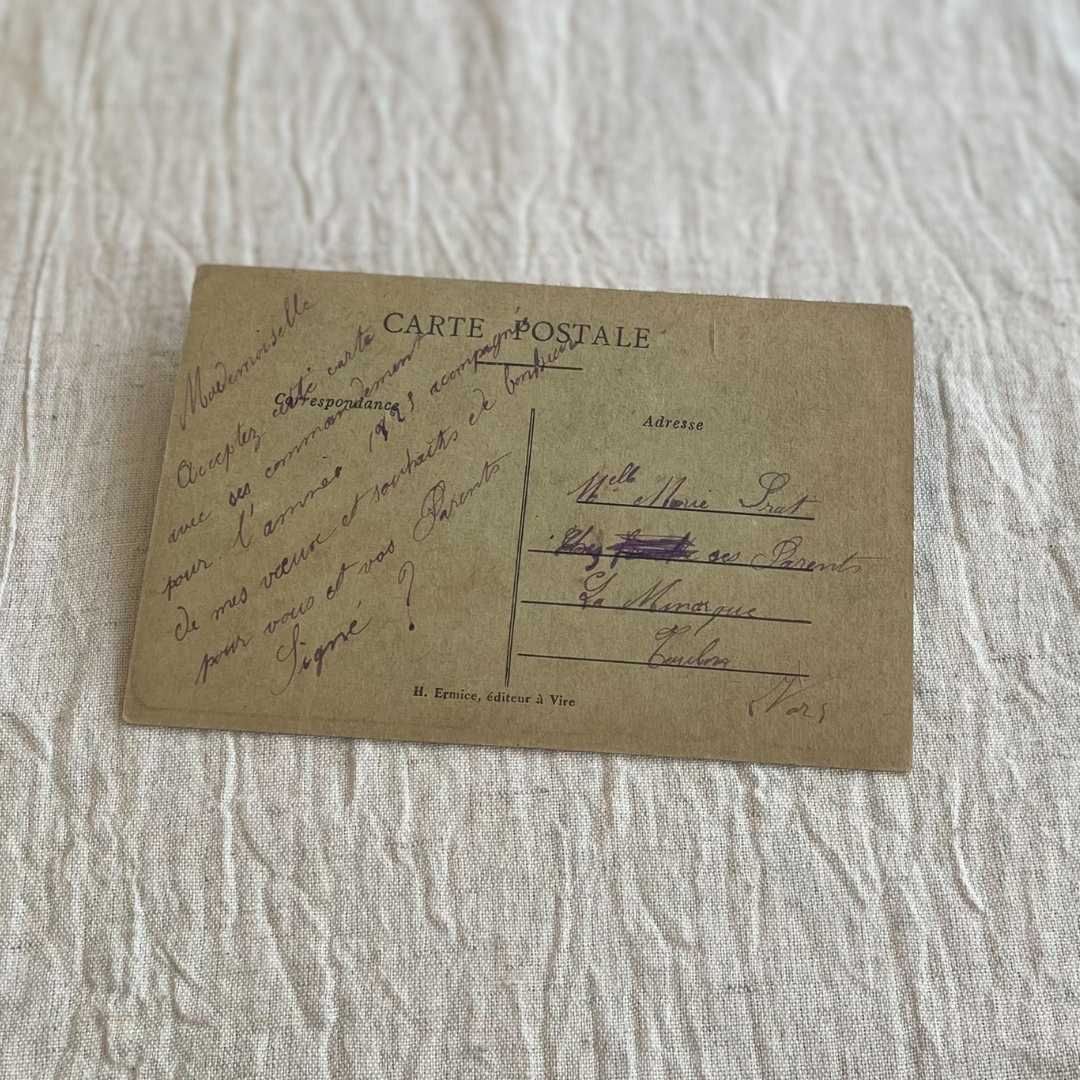 CARTE POSTALE
Correspondance
Mademoiselle
Acceptez cette carte
avec ses commandement
pour l'année acompagné
de mes vœux et souhaits de bonheur
pour vous et vos Parents
Signé ?
Adresse
Melle Marie Prat
Chez ses Parents
La Minorque
Toulon
Var
H. Ermice, éditeur à Vire